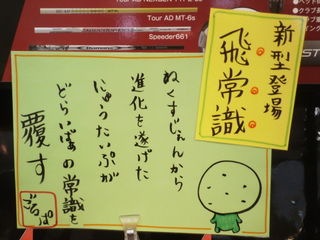 Tour AD MT-6s
Speeder661
新型登場
飛常識
ねくすじぇんから
進化を遂げた
にゅうたいぷが
どらいばぁの常識を
覆す